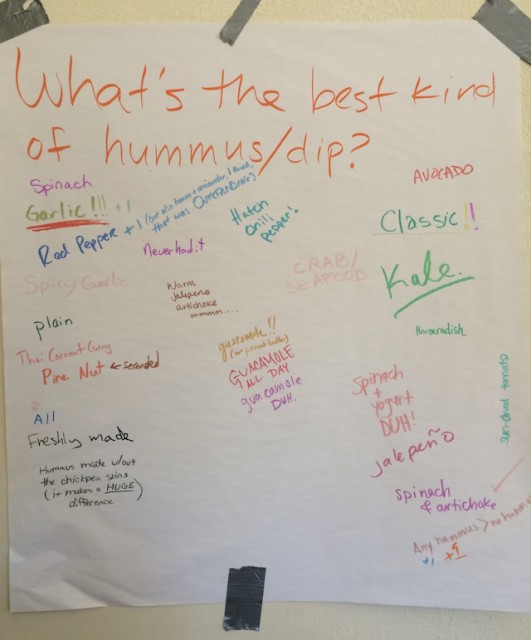 What's the best kind
of hummus/dip?
Spinach
Garlic!!! +1
Red Pepper +1 (but also had a
that was OUTSTANDING)
Never had it
Hatch
chili
pepper!
AVOCADO
Classic!!
Spicy Garlic
Warm
jalapeño
artichoke
mmmm....
CRAB/
SEAFOOD
Kale.
plain
Horseradish
Thai Coconut Curry
Pine Nut ← seconded
guacamole!!
(or peanut butter)
GUACAMOLE
ALL DAY
guacamole
DUH.
Spinach
+
yogurt
DUH!
sun-dried tomato
All
Freshly made
jalepeño
Hummus made w/out
the chickpea skins
(it makes a HUGE)
difference
spinach
& artichoke
Any hummus > no hummus
+1 +1